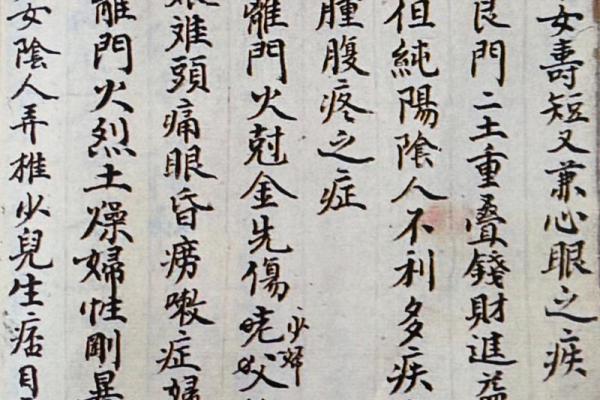 女壽短又兼心眼之疾
艮門二土重疊錢財進益
但純陽陰人不利多疾
腫腹疼之症
離門火尅金先傷
少婦
難頭痛眼昏癆嗽症婦
離門火烈土燥婦性剛暴
女陰人弄權少兒生痞目